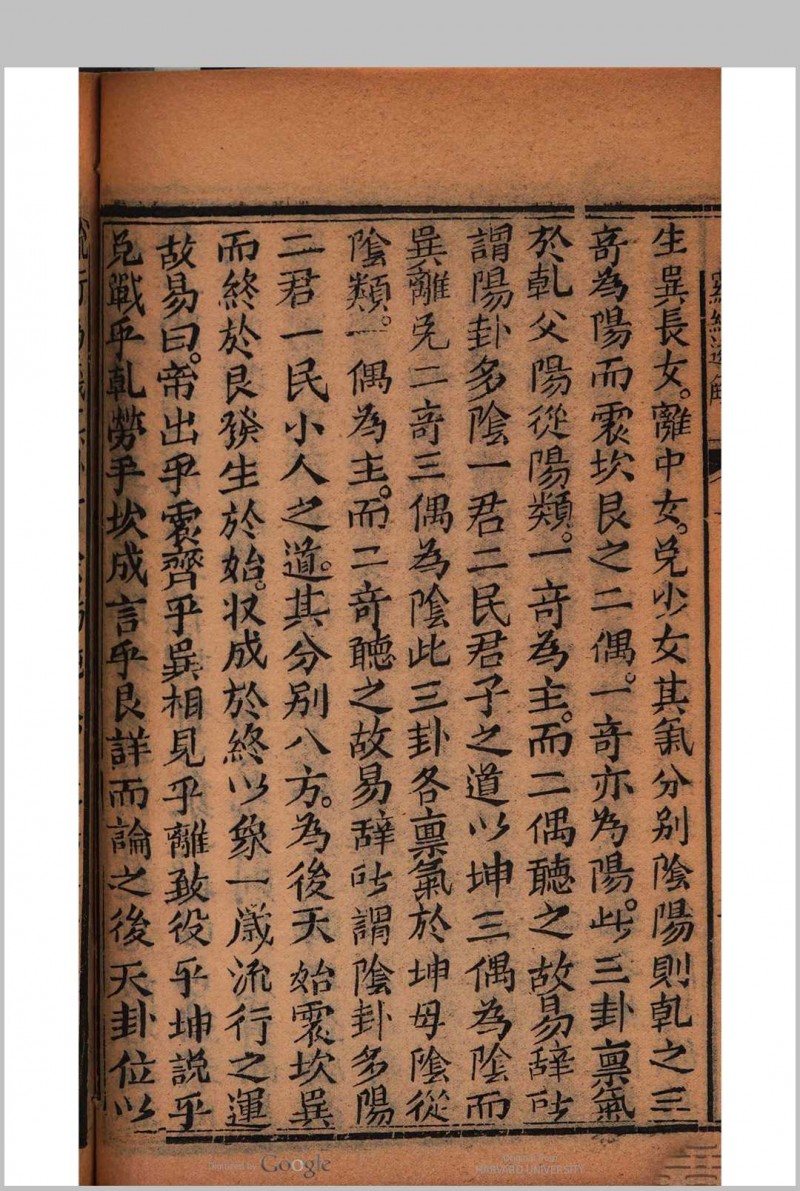 生巽長女。離中女。兌少女其氣分别陰陽則乾之三
奇為陽而震坎艮之二偶。一奇亦為陽。此三卦禀氣
於乾父陽從陽類。一奇為主。而二偶聽之故易辞所
謂陽卦多陰一君二民君子之道以坤三偶為陰而
巽離兌二奇三偶為陰此三卦各禀氣於坤母陰從
陰類。一偶為主。而二奇聽之故易辞所謂陰卦多陽
二君一民小人之道。其分别八方。為後天始震坎巽
而終於艮發生於始。収成於終以象一歳流行之運
故易曰。帝出乎震齊乎巽相見乎離致役乎坤説乎
兌戰乎乾勞乎坎成言乎艮詳而論之後天卦位以
Digitized by Google
Original from
HARVARD UNIVERSITY